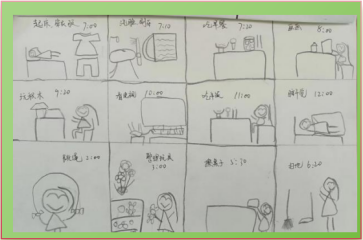 起床 穿衣服 7:00
洗脸 刷牙 7:10
吃早餐 7:20
8:00
玩玩具 9:20
看电视 10:00
吃午饭 11:00
睡午觉 12:00
跳绳 2:00
整理玩具
3:00
擦桌子 5:10
扫地 6:20